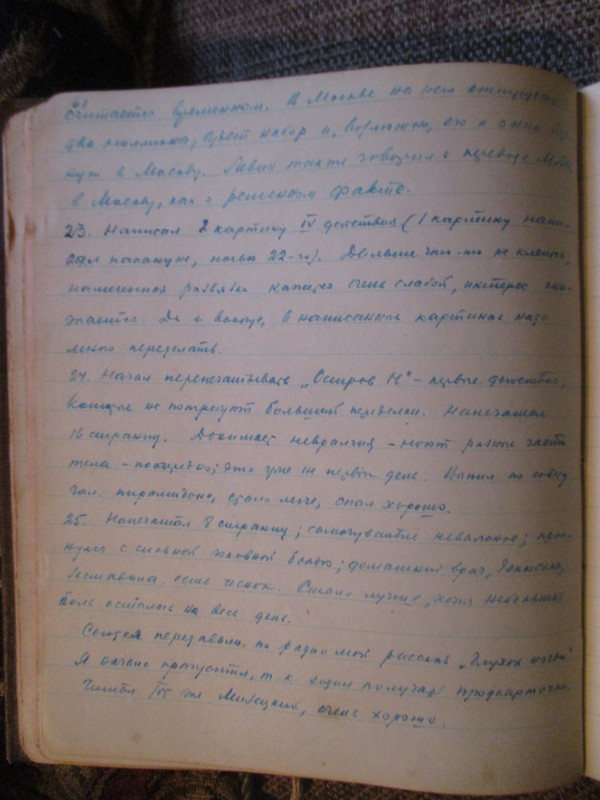 считается временным. В Москве на него отпущено
два миллиона, идет набор и, возможно, его и
в Москву. Левин также говорил о переводе
в Москву, как о решенном факте.
23. Написал 2 картину IV действия (1 картину напи-
сал накануне, ночью 22-го). Дальше что-то не клеится,
намеченная развязка кажется очень слабой, интерес сни-
жается. Да и вообще, в написанных картинах надо
много переделать.
24. Начал перепечатывать „Остров Н" - первые действия,
которые не потребуют большой переделки. Напечатал
16 страниц. Донимает невралгия - ноют разные части
тела - поочередно; это уже не первый день. Выпил по совету
Гал. пирамидона, стало легче, спал хорошо.
25. Напечатал 8 страниц; самочувствие неважное; прос-
нулся с сильной головной болью; домашний врач,
заставила есть чеснок. Стало лучше, хотя небольшая
боль осталась на весь день.
Сегодня передавали по радио мой рассказ „Глухой ночью".
Я начало пропустил, т.к. ходил получать продкарточки.
Читал очень хорошо.